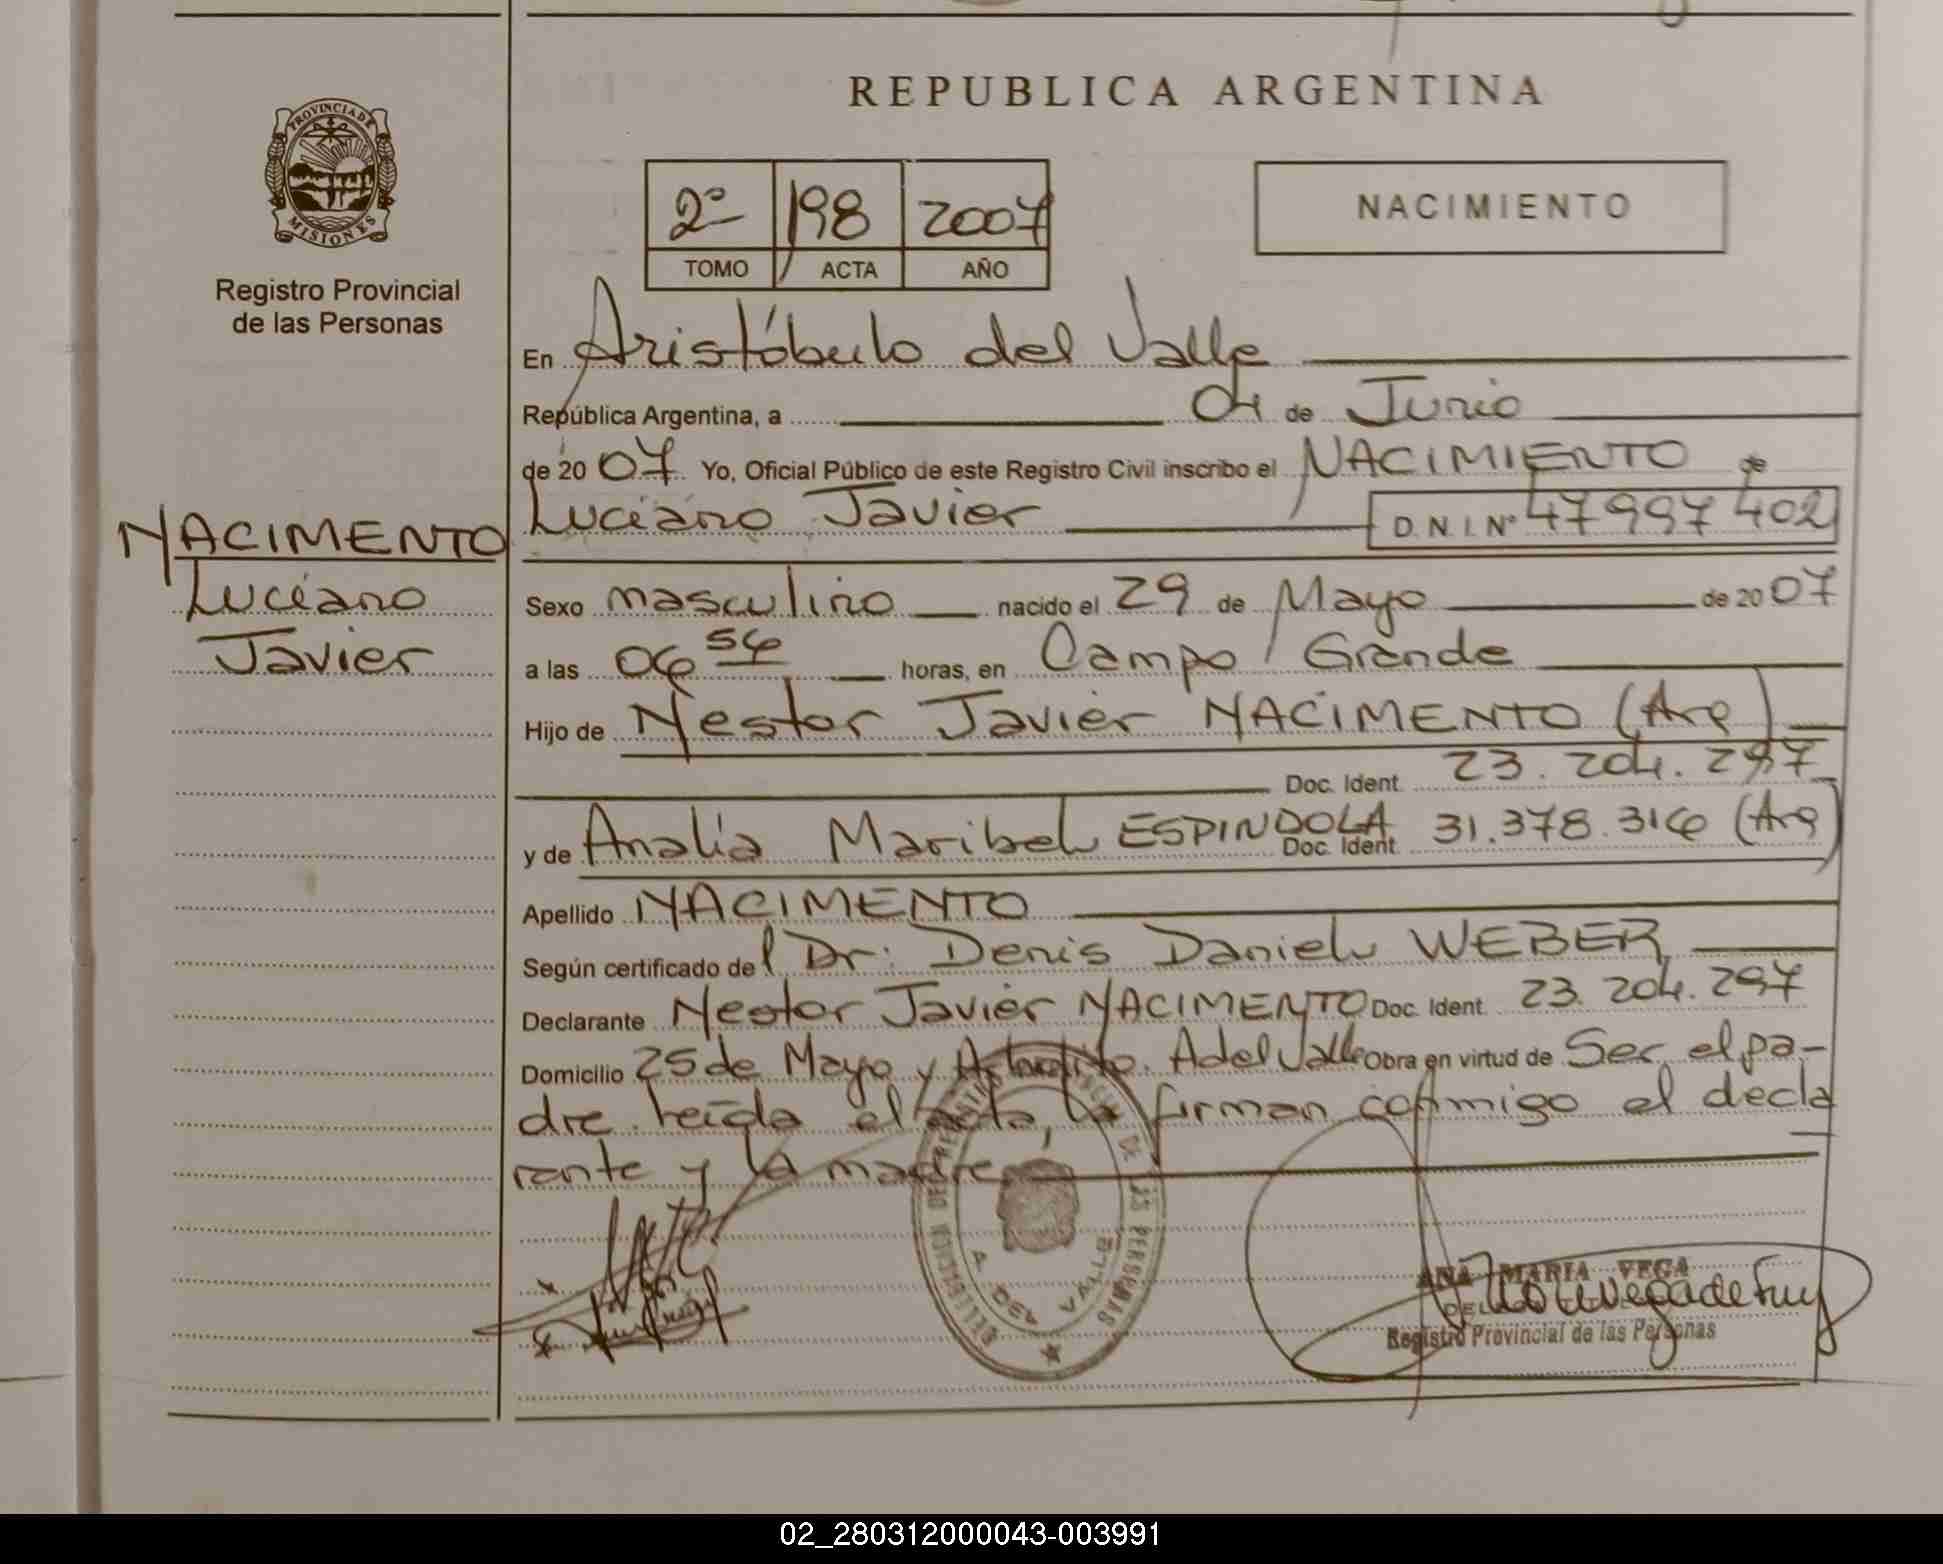 REPUBLICA ARGENTINA
PROVINCIA DE
MISIONES
Registro Provincial
de las Personas
2º 198 2007
TOMO ACTA AÑO
NACIMIENTO
En Aristóbulo del Valle
República Argentina, a 04 de Junio
de 20 07 Yo, Oficial Público de este Registro Civil inscribo el NACIMIENTO de
Luciano Javier D.N.I. Nº 47997402
NACIMENTO
Luciano
Javier
Sexo masculino nacido el 29 de Mayo de 20 07
a las 06 56 horas, en Campo Grande
Hijo de Nestor Javier NACIMENTO (Arg)
Doc. Ident. 23.204.297
y de Analía Maribel ESPINDOLA Doc. Ident. 31.378.316 (Arg)
Apellido NACIMENTO
Según certificado del Dr: Denis Daniel WEBER
Declarante Nestor Javier NACIMENTO Doc. Ident. 23.204.297
Domicilio 25 de Mayo y A del Valle Obra en virtud de Ser el pa-
dre. leída el acta, la firman conmigo el decla
rante y la madre
A. DEL VALLE
ANA MARIA VEGA
Registro Provincial de las Personas
02_280312000043-003991